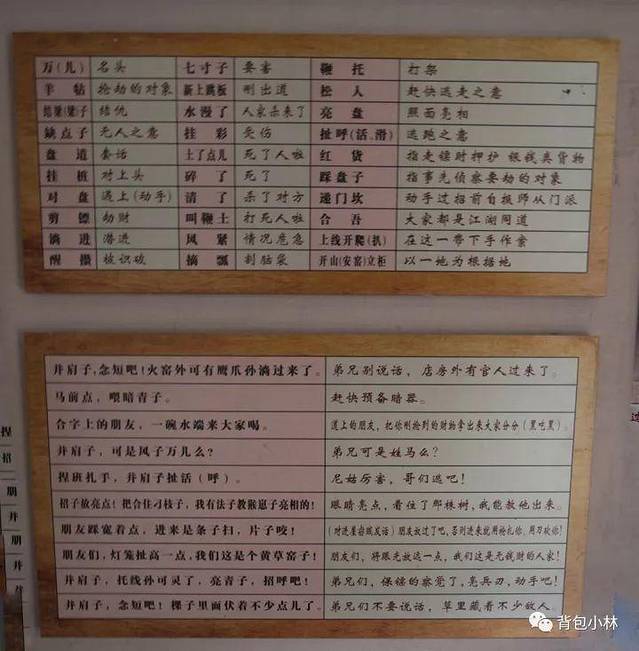 万(儿) 名头 七寸子 要害 鞭托 打架
羊牯 抢劫的对象 新上跳板 刚出道 松人 赶快逃走之意
结梁(樑)子 结仇 水漫了 人家杀来了 亮盘 照面亮相
缺点子 无人之意 挂彩 受伤 扯呼(活、滑) 逃跑之意
盘道 套话 土了点儿 死了人啦 红货 指走镖时押护银钱类货物
挂桩 对上头 碎了 死了 踩盘子 指事先侦察要劫的对象
对盘 遇上(动手) 清了 杀了对方 递门坎 动手过招前自报师从门派
剪镖 劫财 叫鞭土 打死人啦 合吾 大家都是江湖同道
滴进 潜进 风紧 情况危急 上线开爬(扒) 在这一带下手作案
醒攒 被识破 摘瓢 割脑袋 开山(安窑)立柜 以一地为根据地
并肩子,念短吧!火窑外可有鹰爪孙滴过来了。 弟兄别说话,店房外有官人过来了。
马前点,喂暗青子。 赶快预备暗器。
合字上的朋友,一碗水端来大家喝。 道上的朋友,把你刚抢到的财物拿出来大家分分(黑吃黑)。
并肩子,可是风子万儿么? 弟兄可是姓马么?
捏班扎手,并肩子扯活(呼)。 尼姑厉害,哥们逃吧!
招子放亮点!把合住刁枝子,我有法子教猴崽子亮相的! 眼睛亮点,看住了那株树,我能教他出来。
朋友踩宽着点,进来是条子扫,片子咬! (对进屋岩贼发话)朋友放过了吧,否则进来就用枪扎你,用刀砍你!
朋友们,灯笼扯高一点,我们这是个黄草窑子! 朋友们,将眼光放远一点,我们这是无钱财的人家!
并肩子,托线孙可灵了,亮青子,招呼吧! 弟兄们,保镖的察觉了,亮兵刃,动手吧!
并肩子,念短吧!棵子里面伏着不少点儿了。 弟兄们不要说话,草里藏着不少敌人。
捏
招
朋
并
朋
并
并
背包小林